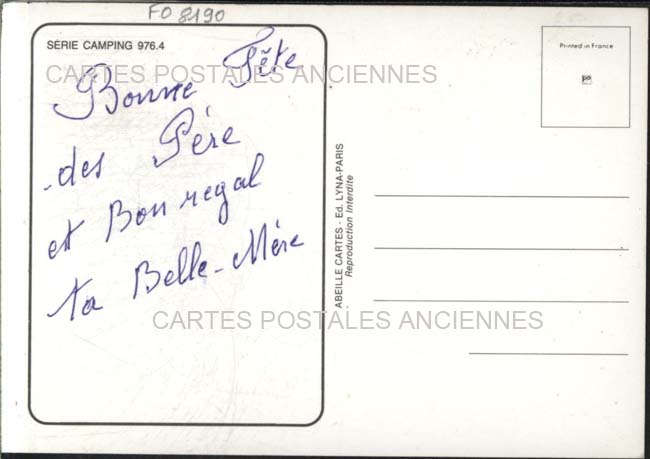 FO 8190
SÉRIE CAMPING 976.4
CARTES POSTALES ANCIENNES
Bonne Fête
des Père
et Bon regal
ta Belle-Mére
Printed in France
ABEILLE CARTES - Ed. LYNA-PARIS
Reproduction Interdite
CARTES POSTALES ANCIENNES